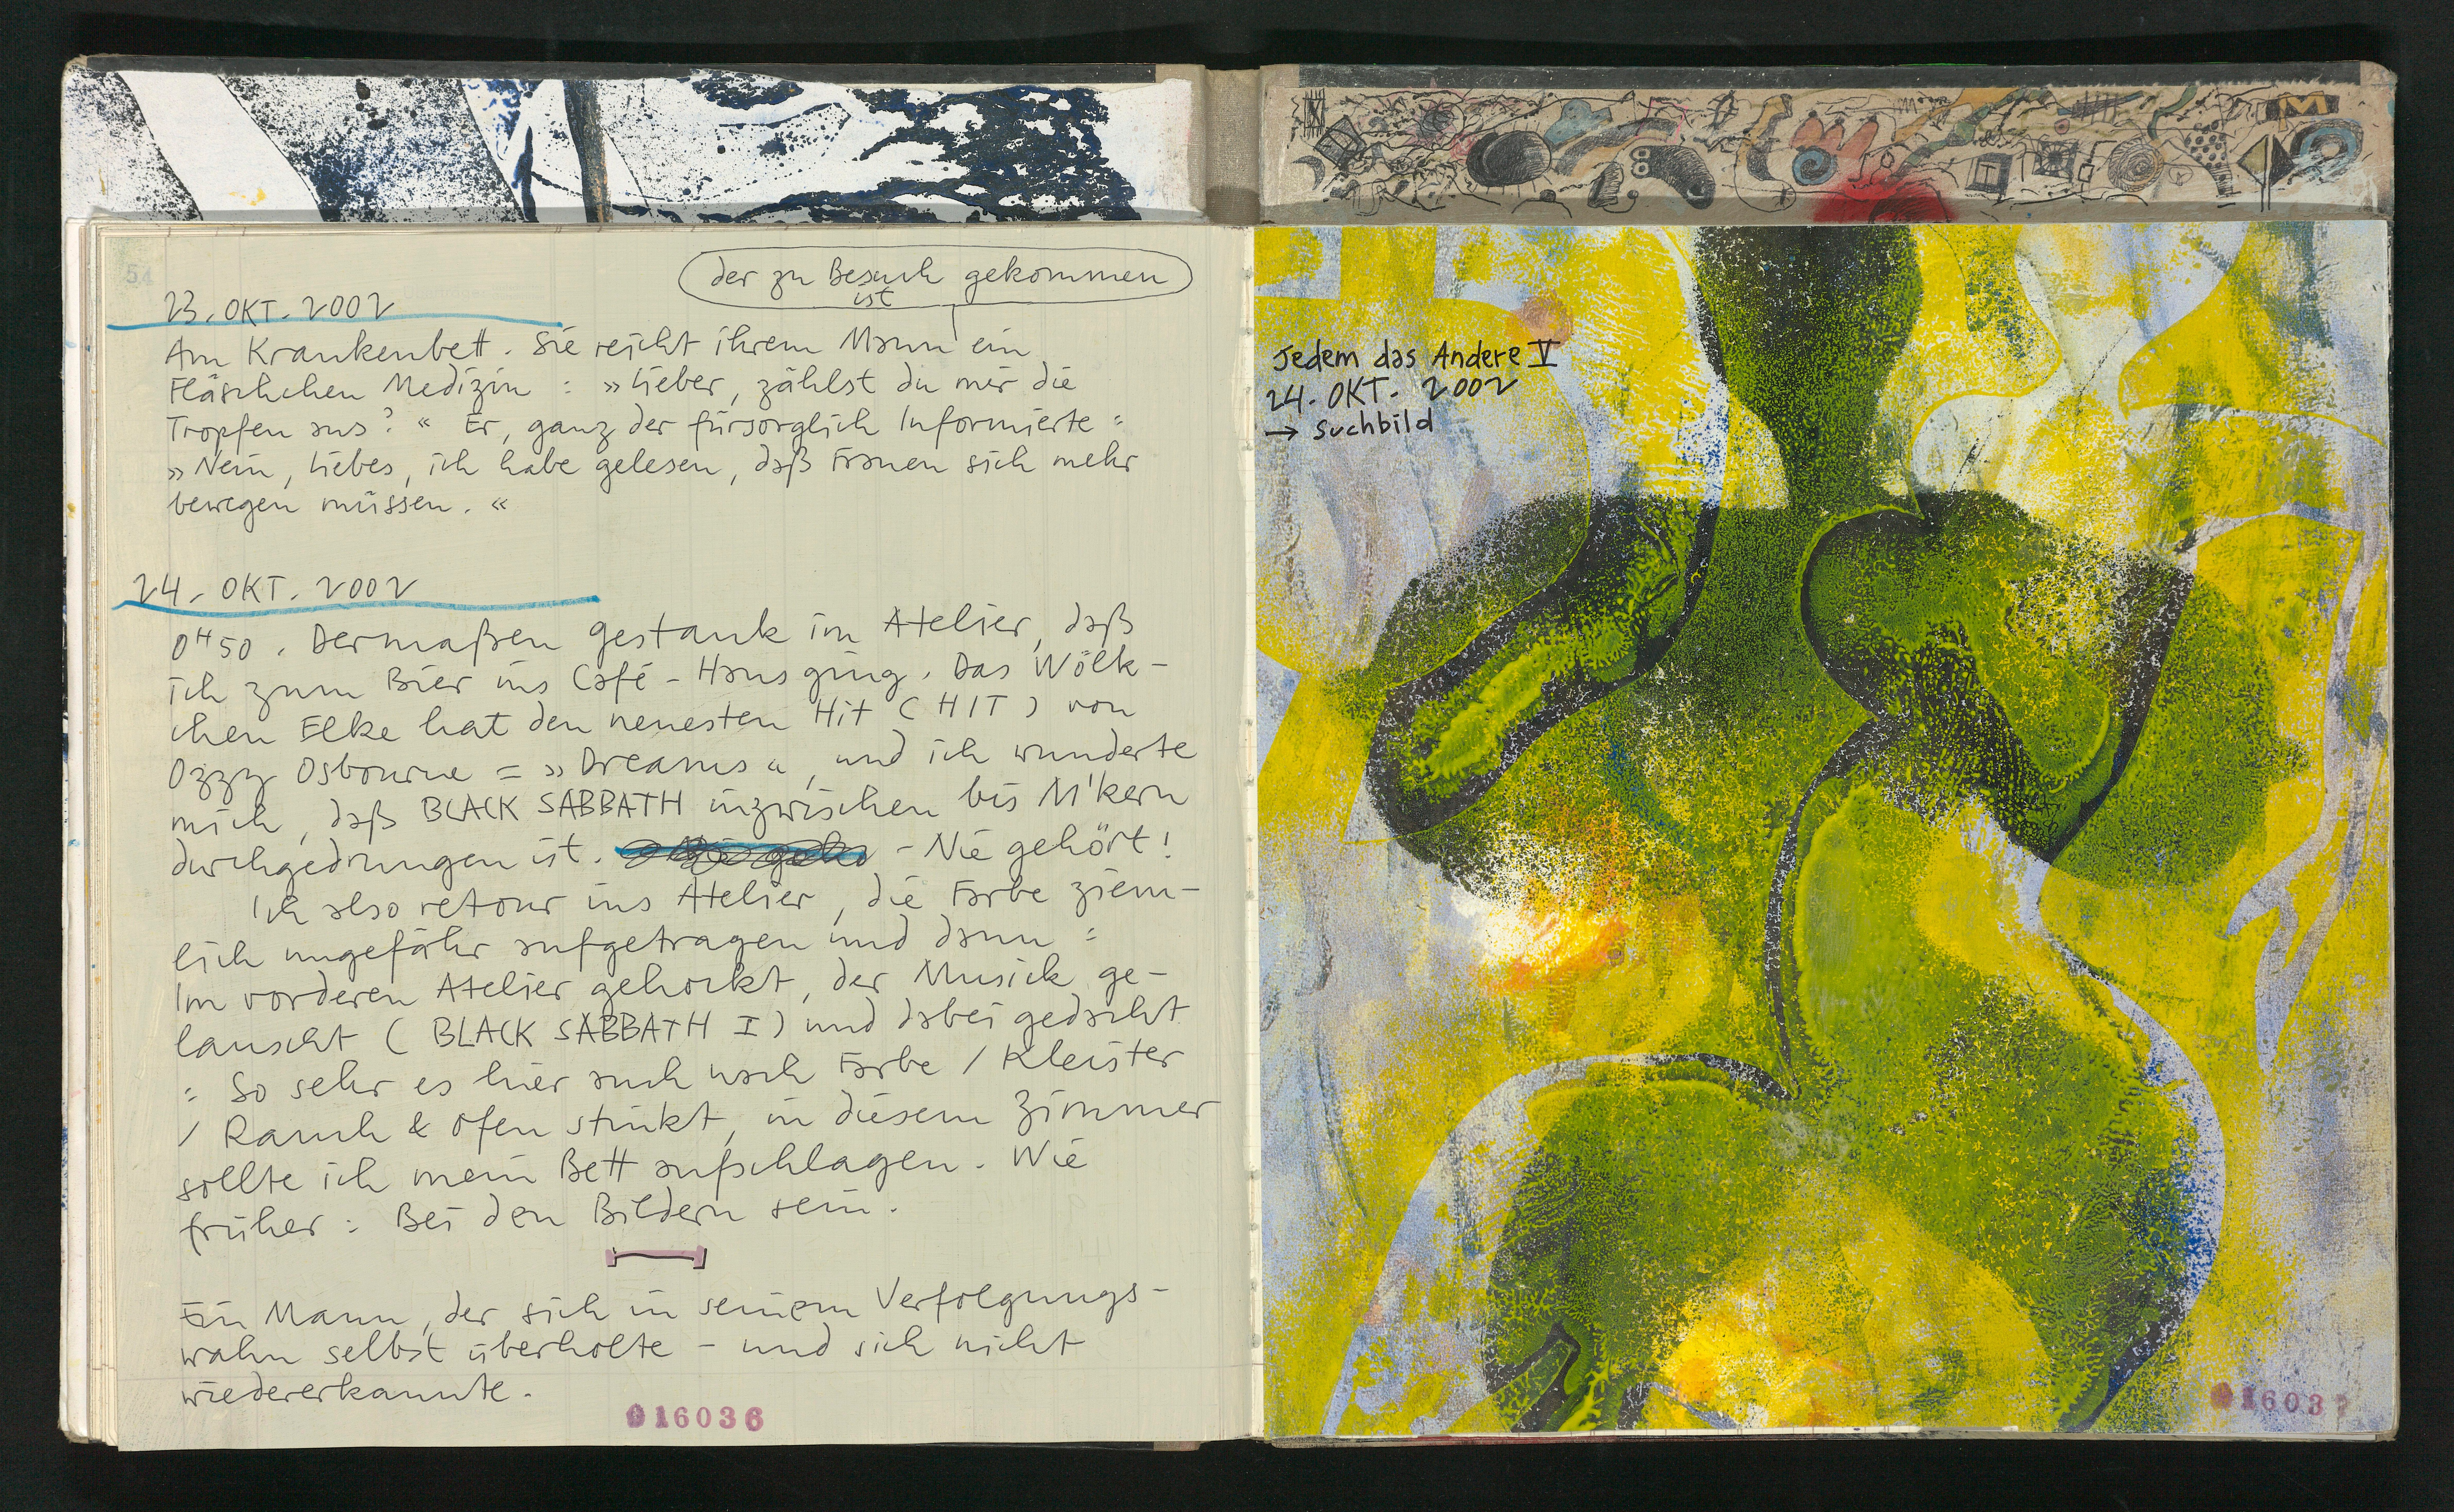 54
der zu Besuch gekommen
ist
23. OKT. 2002
Am Krankenbett. Sie reicht ihrem Mann ein
Fläschchen Medizin : »Lieber, zählst du mir die
Tropfen aus? « Er, ganz der fürsorglich Informierte :
»Nein, Liebes, ich habe gelesen, daß Frauen sich mehr
bewegen müssen. «
24. OKT. 2002
0ᴴ50. Dermaßen gestank im Atelier, daß
ich zum Bier ins Café-Haus ging. Das Wölk-
chen Elke hat den neuesten Hit (HIT) von
Ozzy Osbourne = »Dreams«, und ich wunderte
mich, daß BLACK SABBATH inzwischen bis M'kern
durchgedrungen ist. - Nie gehört!
Ich also retour ins Atelier, die Farbe ziem-
lich ungefähr aufgetragen und dann :
Im vorderen Atelier gehockt, der Musick ge-
lauscht (BLACK SABBATH I) und dabei gedacht
: So sehr es hier auch nach Farbe / Kleister
/ Rauch & Ofen stinkt, in diesem Zimmer
sollte ich mein Bett aufschlagen. Wie
früher : Bei den Bildern sein.
Ein Mann, der sich in seinem Verfolgungs-
wahn selbst überholte - und sich nicht
wiedererkannte.
016036
Jedem das Andere V
24. OKT. 2002
→ Suchbild
M